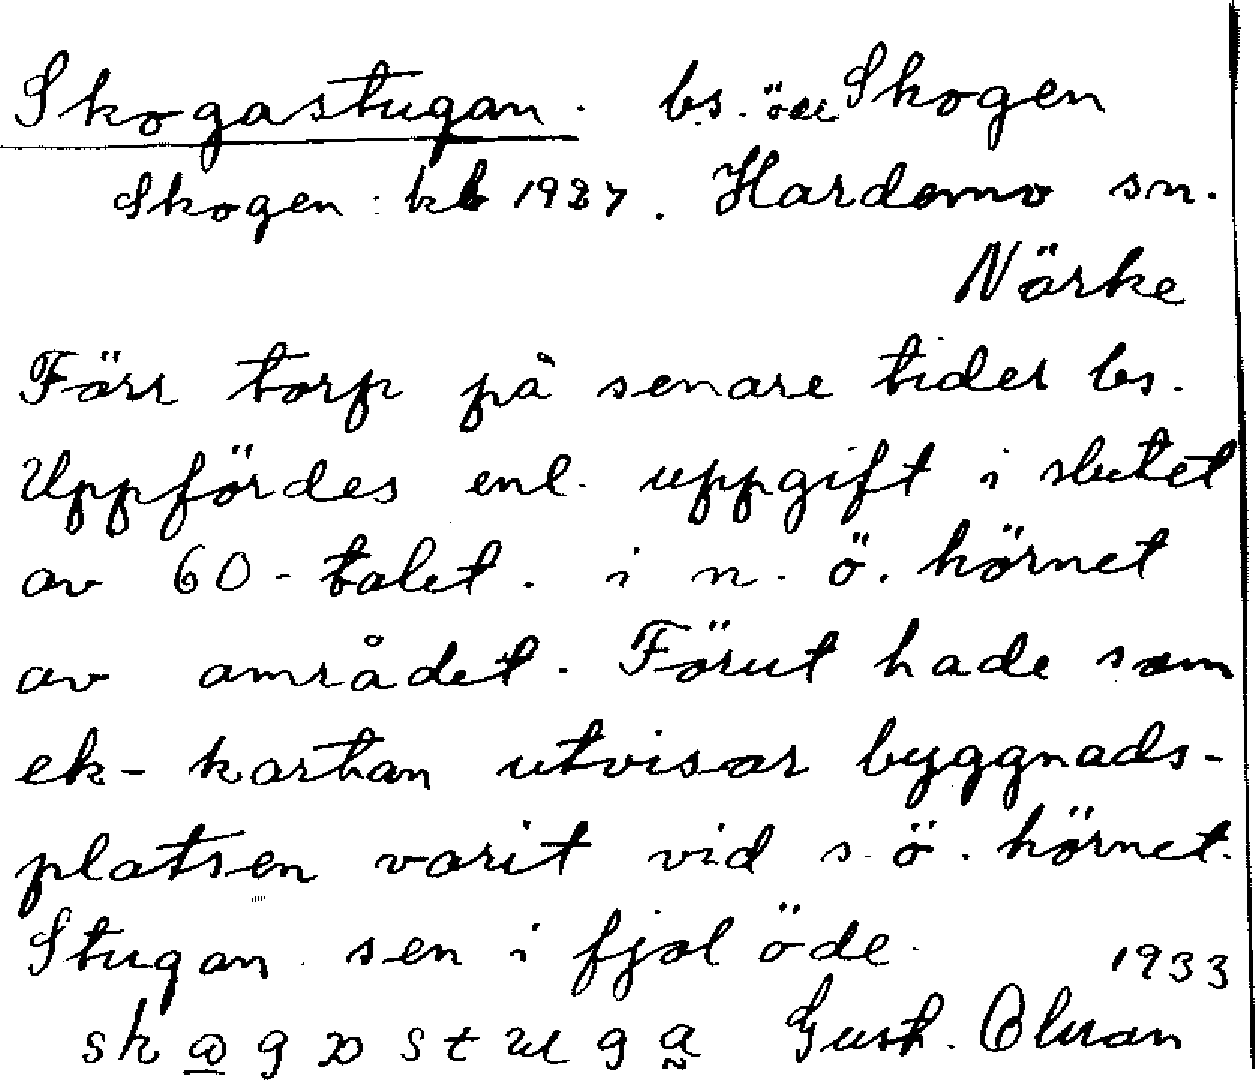 Skogastugan. bs. öde Skogen
Skogen : kb 1927. Hardemo sn.
Närke
Förr torp på senare tider bs.
Uppfördes enl. uppgift i slutet
av 60-talet. i n. ö. hörnet
av området. Förut hade som
ek-kartan utvisar byggnads-
platsen varit vid s. ö. hörnet.
Stugan sen i fjol öde.
1933
Gust. Olsson